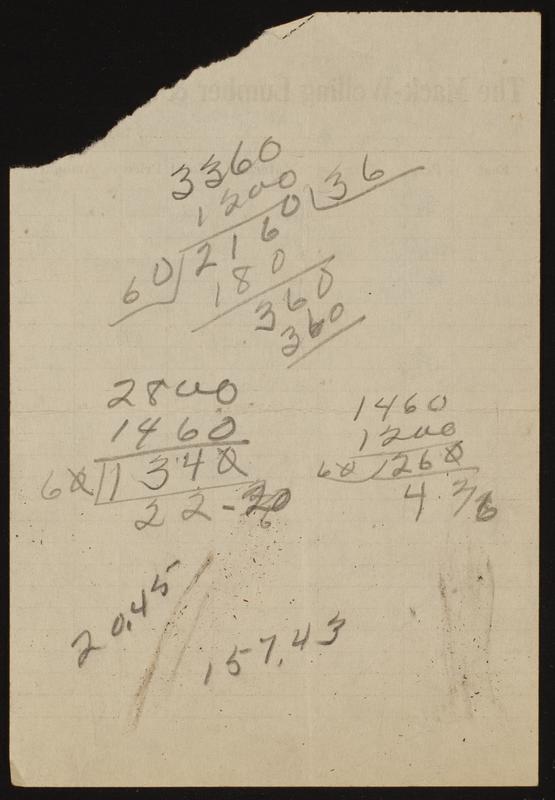 The Mack-Welling Lumber &
3360
1200
60)2160(36
180
360
360
2800
1460
60)1340
22-20
6
1460
1200
60)1260
4 3/6
20.45
157.43